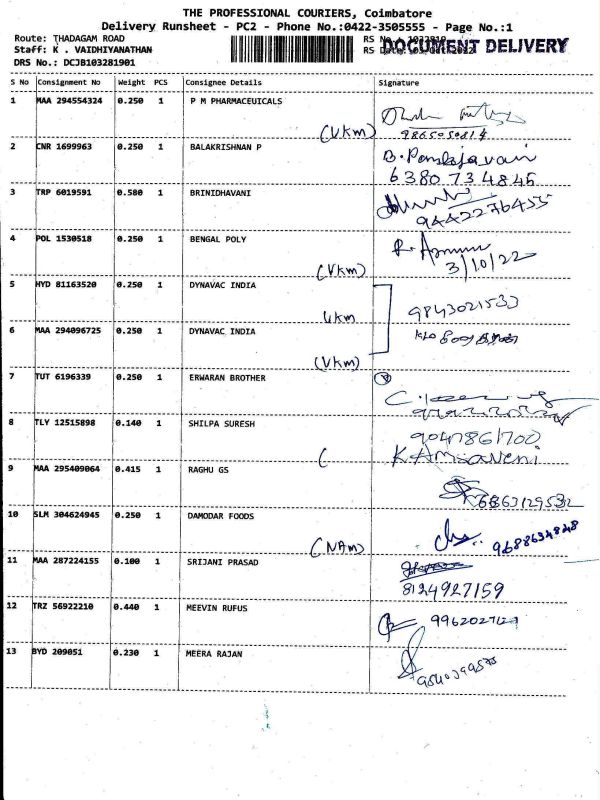 THE PROFESSIONAL COURIERS, Coimbatore
Delivery Runsheet - PC2 - Phone No.:0422-3505555 - Page No.:1
Route: THADAGAM ROAD
DOCUMENT DELIVERY
Staff: K . VAIDHIYANATHAN
DRS No.: DCJB103281901
S No Consignment No Weight PCS Consignee Details Signature
1 MAA 294554324 0.250 1 P M PHARMACEUICALS
(Vkm)
2 CNR 1699963 0.250 1 BALAKRISHNAN P
6380734845
3 TRP 6019591 0.580 1 BRINIDHAVANI
9442276455
4 POL 1530518 0.250 1 BENGAL POLY
(Vkm) 3/10/22
5 HYD 81163520 0.250 1 DYNAVAC INDIA
9843021533
Vkm
6 MAA 294096725 0.250 1 DYNAVAC INDIA
(Vkm)
7 TUT 6196339 0.250 1 ERWARAN BROTHER
8 TLY 12515898 0.140 1 SHILPA SURESH
9047861700
9 MAA 295409064 0.415 1 RAGHU GS
10 SLM 304624945 0.250 1 DAMODAR FOODS
(NAm) 9688634848
11 MAA 287224155 0.100 1 SRIJANI PRASAD
8124927159
12 TRZ 56922210 0.440 1 MEEVIN RUFUS
13 BYD 209051 0.230 1 MEERA RAJAN